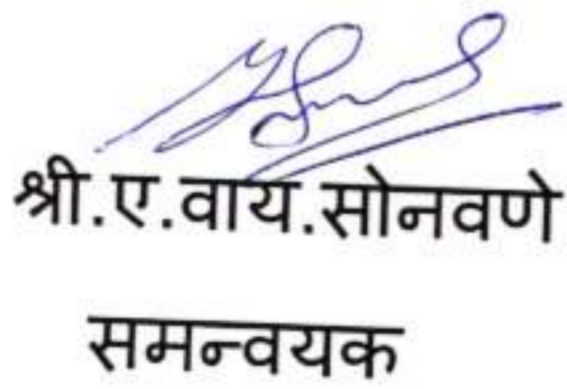 श्री.ए.वाय.सोनवणे
समन्वयक